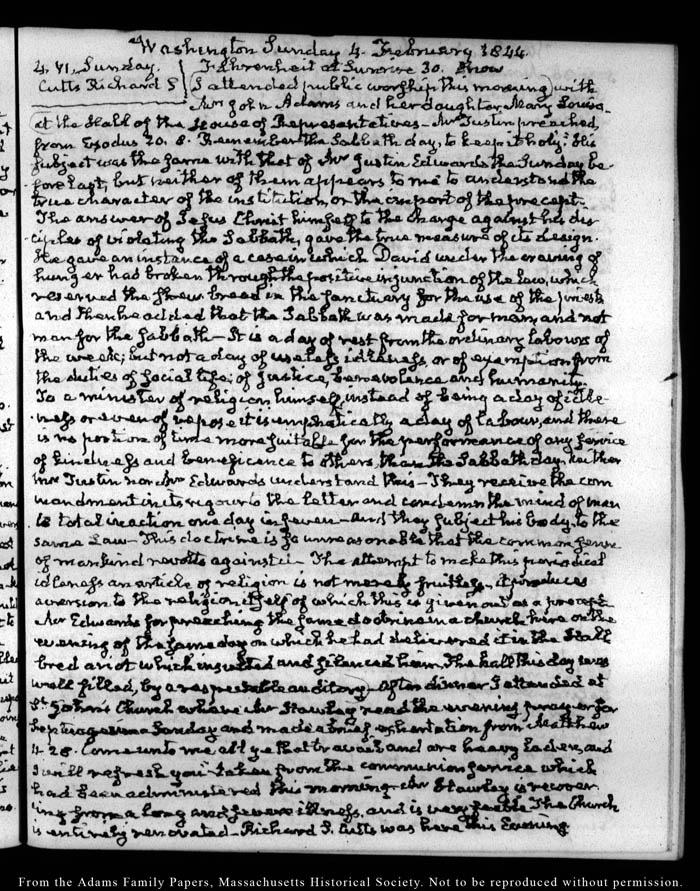 Washington Sunday 4. February 1844.
4. VI. Sunday. Fahrenheit at Sunrise 30. Snow
Cutts Richard S I attended public worship this morning with
Mrs John Adams and her daughter Mary Louisa
at the Hall of the House of Representatives – Mr Tustin preached,
from Exodus 20. 8. Remember the Sabbath day, to keep it holy. His
subject was the same with that of Mr Justin Edwards the Sunday be-
fore last, but neither of them appears to me to understand the
true character of the institution, or the import of the precept.
The answer of Jesus Christ himself to the charge against his dis-
ciples of violating the Sabbath, gave the true measure of its design.
He gave an instance of a case in which David under the craving of
hunger had broken through the positive injunction of the Law, which
reserved the shew bread in the sanctuary for the use of the priests
and then he added that the Sabbath was made for man, and not
man for the Sabbath – It is a day of rest from the ordinary labours of
the week; but not a day of useless idleness, or of exemption from
the duties of social life; of justice, benevolence and humanity.
To a minister of religion himself, instead of being a day of idle-
ness or even of repose it is emphatically a day of labour, and there
is no portion of time more suitable for the performance of any service
of kindness and beneficence to others, than the Sabbath day. Neither
Mr Tustin nor Mr Edwards understand this – They receive the com-
mandment in its rigour to the letter and condemn the mind of man
to total inaction one day in seven – and they subject his body to the
same Law – This doctrine is so unreasonable that the common sense
of mankind revolts against it – The attempt to make this periodical
idleness an article of religion is not merely fruitless – it produces
aversion to the religion itself of which this is given out as a precept.
Mr Edwards for preaching the same doctrine in a church here on the
evening of the same day on which he had delivered it in the Hall
bred a riot which insulted and silenced him. The hall this day was
well filled, by a respectable auditory – After dinner I attended at
St. John's Church where Mr Hawley read the evening prayer for
Septuagesima Sunday and made a brief exhortation from Matthew
11. 28. Come unto me all ye that travail and are heavy laden, and
I will refresh you taken from the communion service which
had been administered this morning – Mr Hawley is recover-
ing from a long and severe illness, and is very feeble The Church
is entirely renovated – Richard S. Cutts was here this Evening
From the Adams Family Papers, Massachusetts Historical Society. Not to be reproduced without permission.